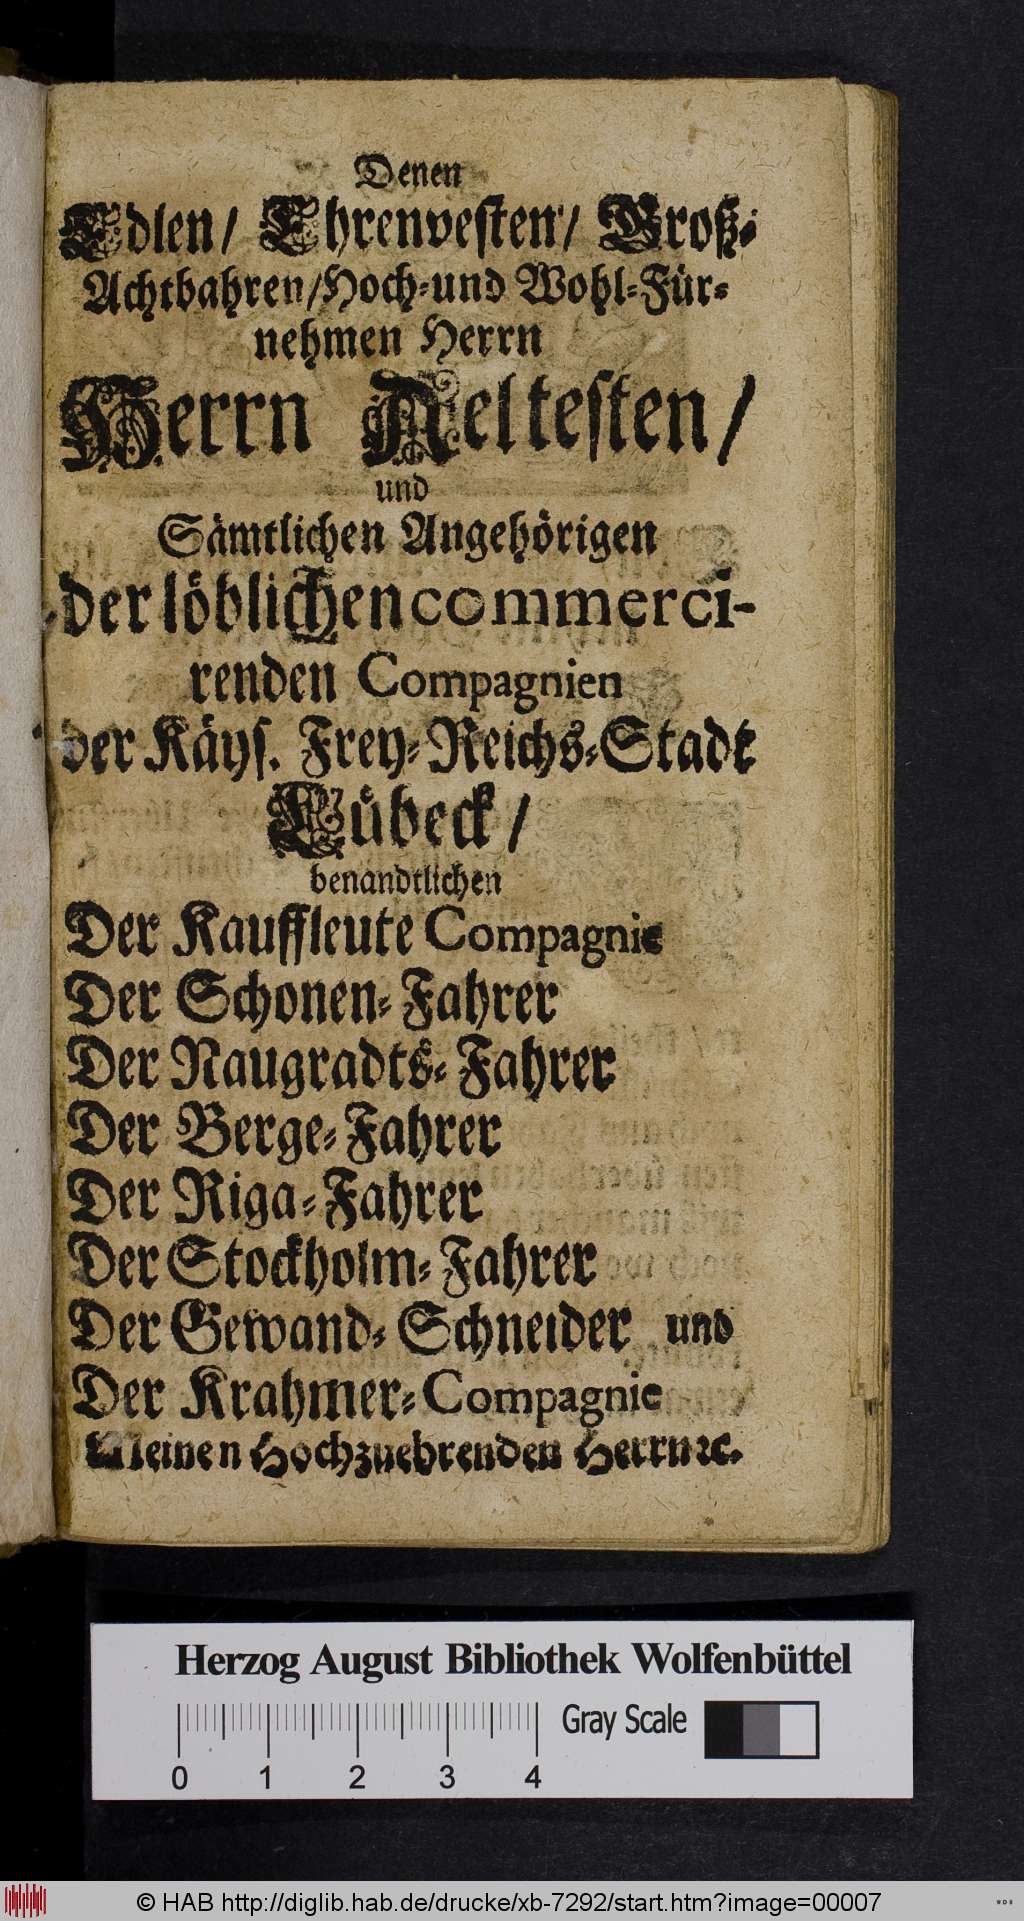 Denen
Edlen/ Ehrenvesten/ Groß-
Achtbahren/Hoch-und Wohl-Für-
nehmen Herrn
Herrn Aeltesten/
und
Sämtlichen Angehörigen
der löblichen commerci-
renden Compagnien
der Käys. Frey-Reichs-Stadt
Lübeck/
benandtlichen
Der Kauffleute Compagnie
Der Schonen-Fahrer
Der Naugradts-Fahrer
Der Berge-Fahrer
Der Riga-Fahrer
Der Stockholm-Fahrer
Der Gewand-Schneider und
Der Krahmer-Compagnie
Meinen Hochzuehrenden Herrn ꝛc.
Herzog August Bibliothek Wolfenbüttel
Gray Scale
0 1 2 3 4
© HAB http://diglib.hab.de/drucke/xb-7292/start.htm?image=00007